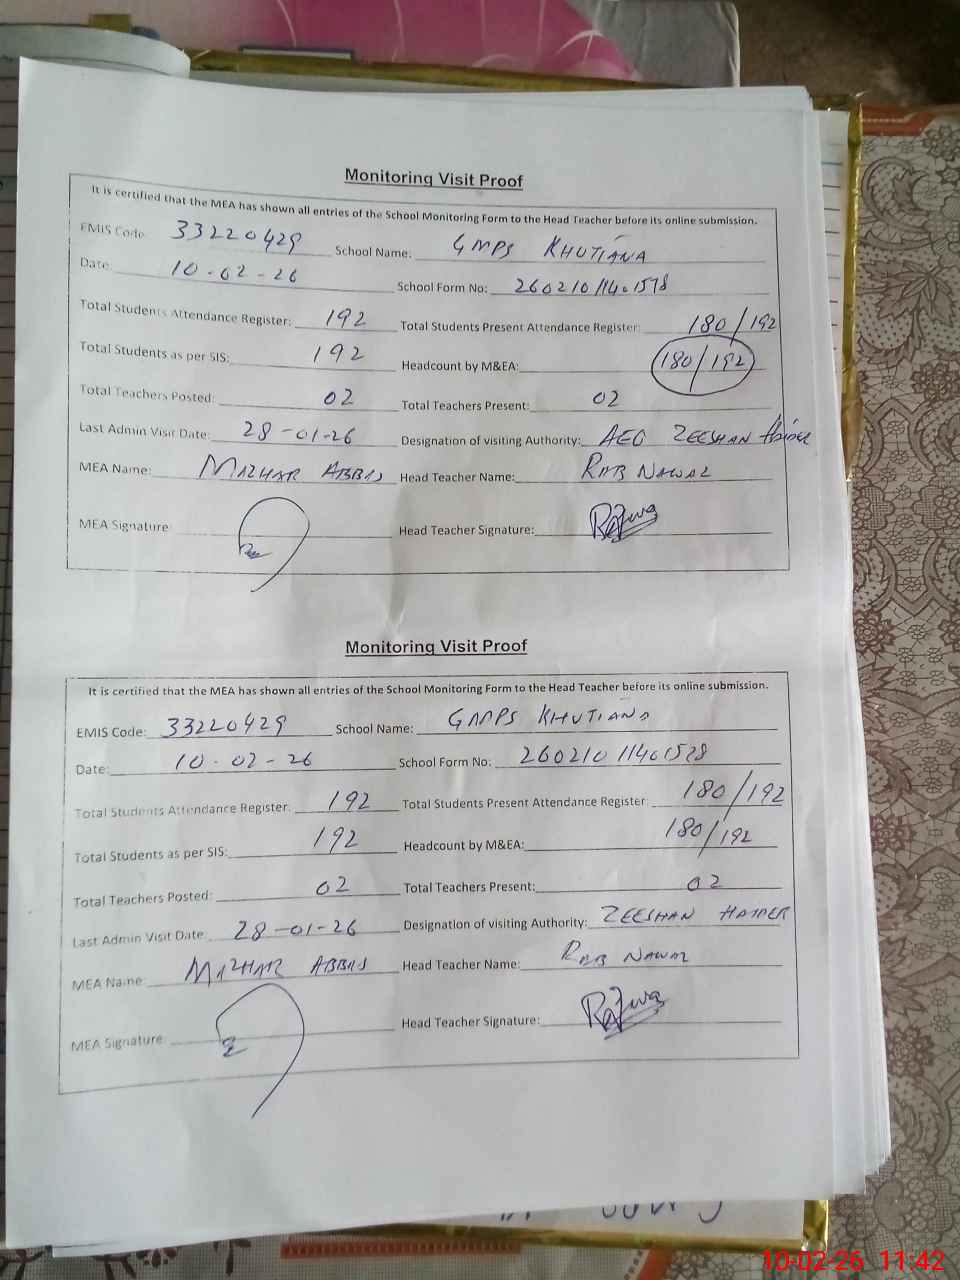 Monitoring Visit Proof
It is certified that the MEA has shown all entries of the School Monitoring Form to the Head Teacher before its online submission.
EMIS Code: 33220429 School Name: GMPS KHUTIANA
Date: 10-02-26 School Form No: 26021011401578
Total Students Attendance Register: 192 Total Students Present Attendance Register: 180/192
Total Students as per SIS: 192 Headcount by M&EA: 180/192
Total Teachers Posted: 02 Total Teachers Present: 02
Last Admin Visit Date: 28-01-26 Designation of visiting Authority: AEO ZEESHAN Haider
MEA Name: MAZHAR ABBAS Head Teacher Name: RAB NAWAZ
MEA Signature: Head Teacher Signature:
Monitoring Visit Proof
It is certified that the MEA has shown all entries of the School Monitoring Form to the Head Teacher before its online submission.
EMIS Code: 33220429 School Name: GMPS KHUTIANA
Date: 10-02-26 School Form No: 26021011401578
Total Students Attendance Register: 192 Total Students Present Attendance Register: 180/192
Total Students as per SIS: 192 Headcount by M&EA: 180/192
Total Teachers Posted: 02 Total Teachers Present: 02
Last Admin Visit Date: 28-01-26 Designation of visiting Authority: ZEESHAN HAIDER
MEA Name: MAZHAR ABBAS Head Teacher Name: RAB NAWAZ
MEA Signature: Head Teacher Signature:
10-02-26 11:42